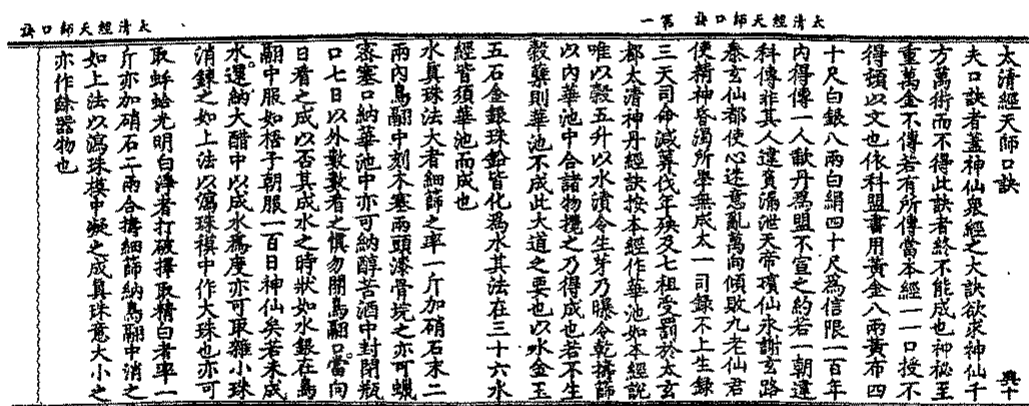 太清經天師口訣　第一
太清經天師口訣
太清經天師口訣
興十
夫口訣者蓋神仙衆經之大訣欲求神仙千
方萬術而不得此訣者終不能成也神秘至
重萬金不傳若有所傳當本經一一口授不
得頓以文也依科盟書用黃金八兩黃布四
十尺白銀八兩白絹四十尺爲信限一百年
內得傳一人歃丹爲盟不宣之約若一朝違
科傳非其人違實漏泄天帝殯仙永謝玄路
泰玄仙都使心迷意亂萬向傾敗九老仙君
使精神昏濁所學無成太一司錄不上生錄
三天司命減筭伐年殃及七祖受罰於太玄
都太清神丹經訣按本經作華池如本經說
唯以穀五升以水漬令生芽乃曝令乾擣篩
以內華池中合諸物攪之乃得成也若不生
穀糵則華池不成此大道之要也以水金玉
五石金銀珠鉛皆化爲水其法在三十六水
經皆須華池而成也
水真珠法大者細篩之率一斤加硝石末二
兩內鳥翮中刻木塞兩頭漆骨垸之亦可蠟
密塞口納華池中亦可納醇苦酒中封閉瓶
口七日以外數數看之慎勿開鳥翮口當向
日看之成以否其成水之時狀如水銀在鳥
翮中服如梧子朝服一百日神仙矣若未成
水還納大醋中以成水爲度亦可取雜小珠
消鍊之如上法以瀉珠模中作大珠也亦可
取蚌蛤光明白淨者打破擇取精白者率一
斤亦加硝石二兩合擣細篩納鳥翮中消之
如上法以瀉珠模中凝之成真珠意大小之
亦作餘器物也